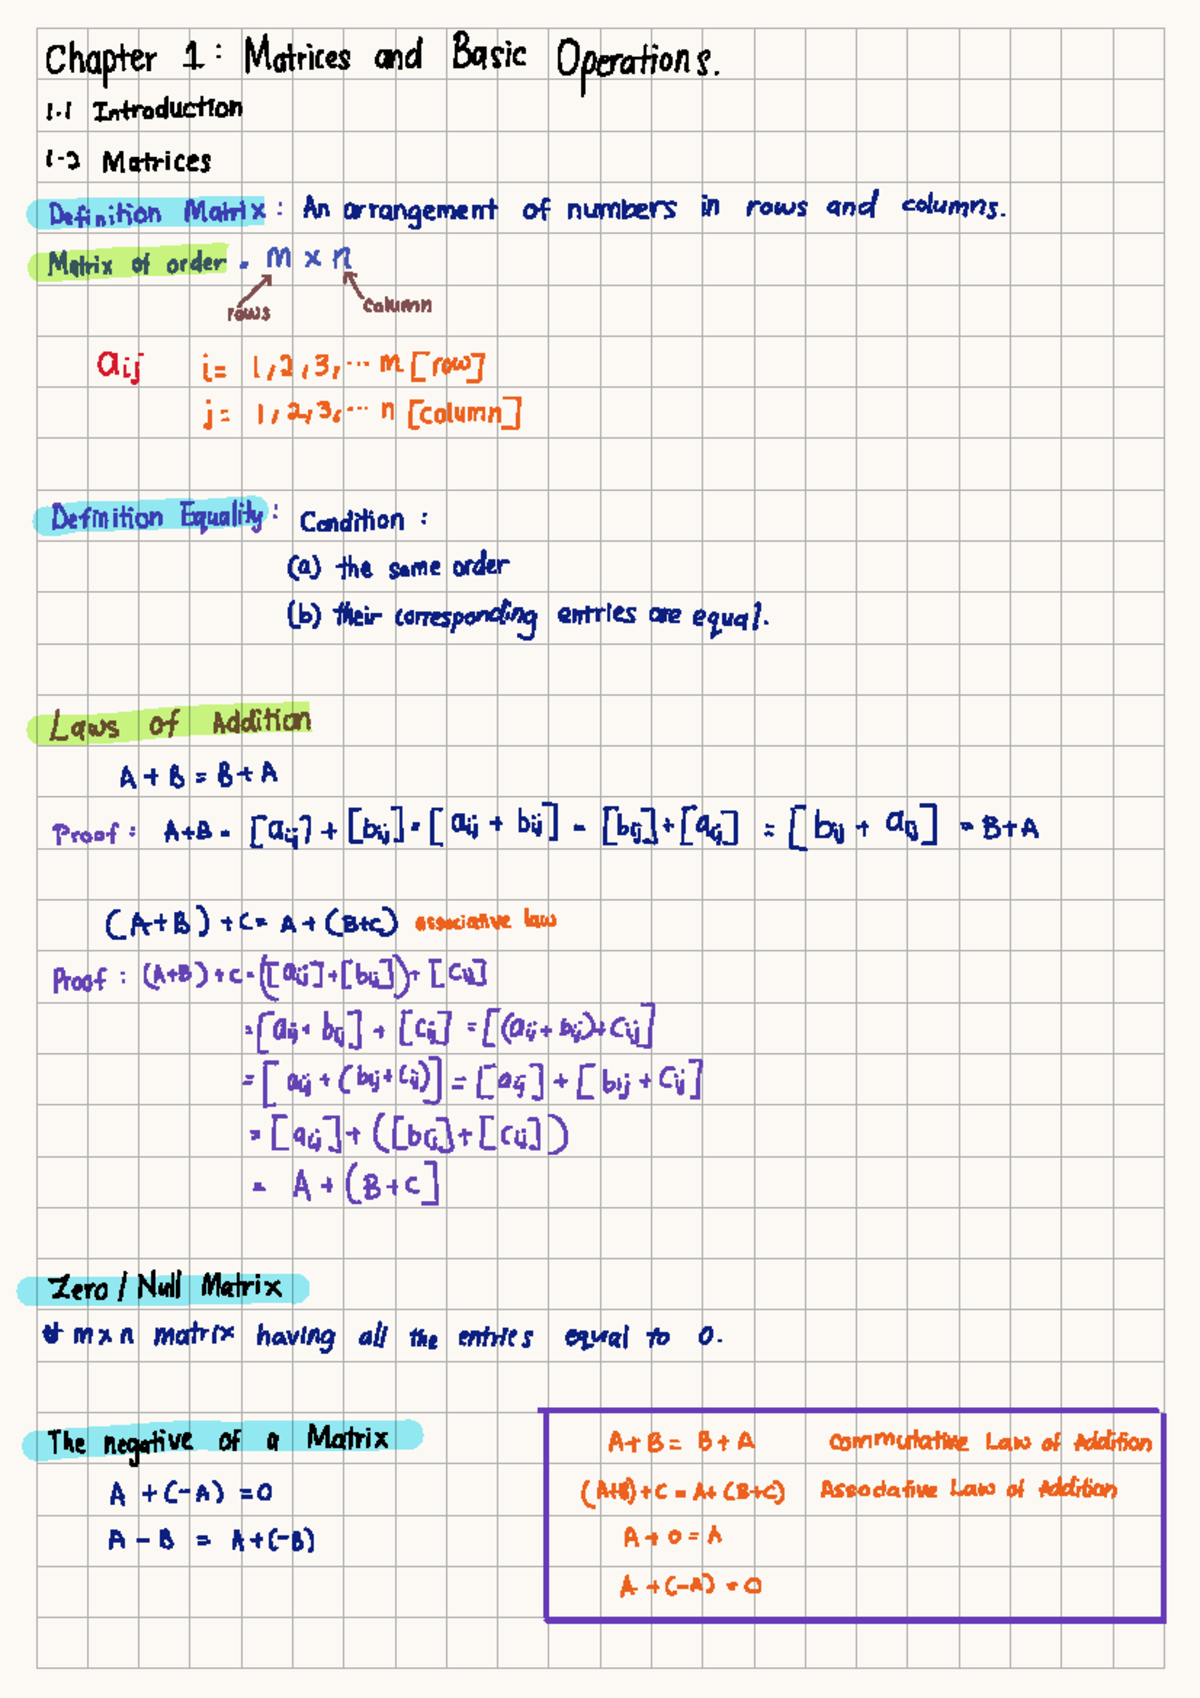 Chapter 1: Matrices and Basic Operations.
1.1 Introduction
1-2 Matrices
Definition Matrix: An arrangement of numbers in rows and columns.
Matrix of order = m × n
rows column
aij i= 1,2,3,... m [row]
j= 1,2,3,... n [column]
Definition Equality: Condition :
(a) the same order
(b) their corresponding entries are equal.
Laws of Addition
A + B = B + A
Proof: A+B = [aij] + [bij] = [aij + bij] = [bij] + [aij] = [bij + aij] = B+A
(A+B) + C = A + (B+C) associative law
Proof : (A+B) + C = ([aij]+[bij]) + [Cij]
= [aij + bij] + [Cij] = [(aij + bij) + Cij]
= [aij + (bij + Cij)] = [aij] + [bij + Cij]
= [aij] + ([bij] + [Cij])
= A + (B+C]
Zero / Null Matrix
* m×n matrix having all the entries equal to 0.
The negative of a Matrix
A + (-A) = 0
A - B = A + (-B)
A + B = B + A Commutative Law of Addition
(A+B) + C = A + (B+C) Associative Law of Addition
A + 0 = A
A + (-A) = 0